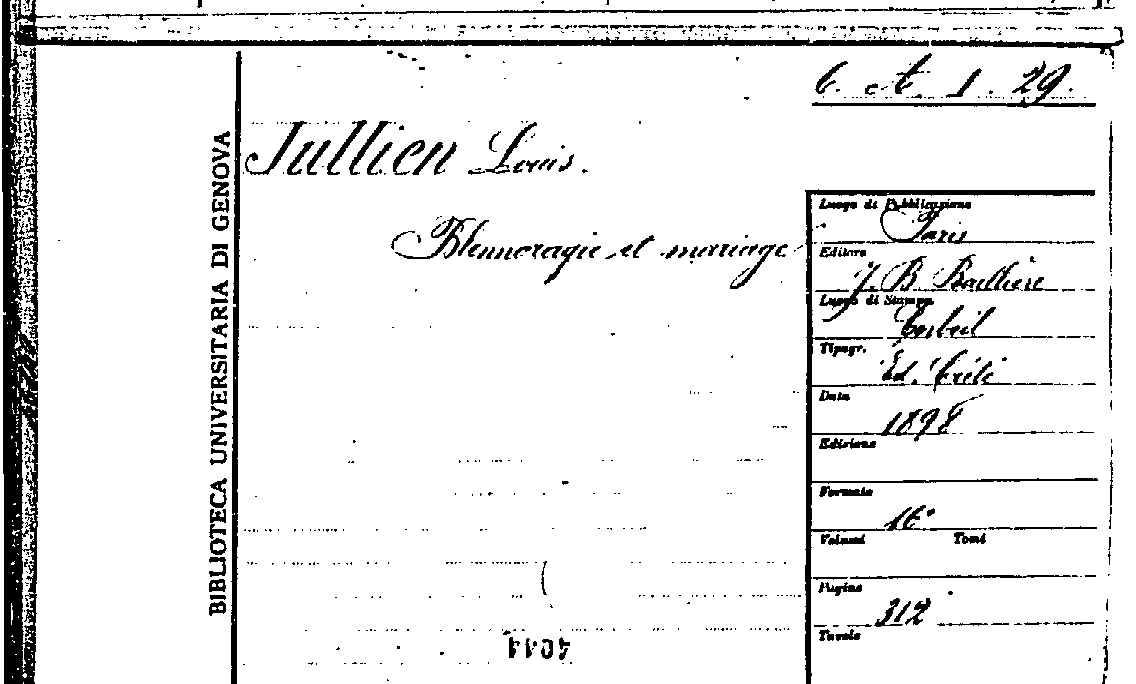 6. A. 1. 29.
BIBLIOTECA UNIVERSITARIA DI GENOVA
Jullien Louis.
Blennoragie et mariage
Luogo di Pubblicazione
Paris
Editore
J. B. Baillière
Luogo di Stampa
Corbeil
Tipogr.
Ed. Crété
Data
1898
Edizione
Formato
16°
Volumi Tomi
Pagine
312
Tavole